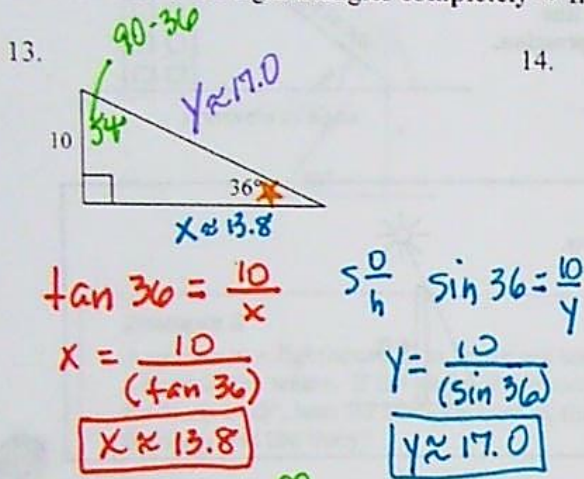 13.
14.
90-36
54°
10
y≈17.0
36°
x≈13.8
tan 36 = 10/x
x = 10/(tan 36)
x ≈ 13.8
s o/h sin 36 = 10/y
y = 10/(sin 36)
y ≈ 17.0